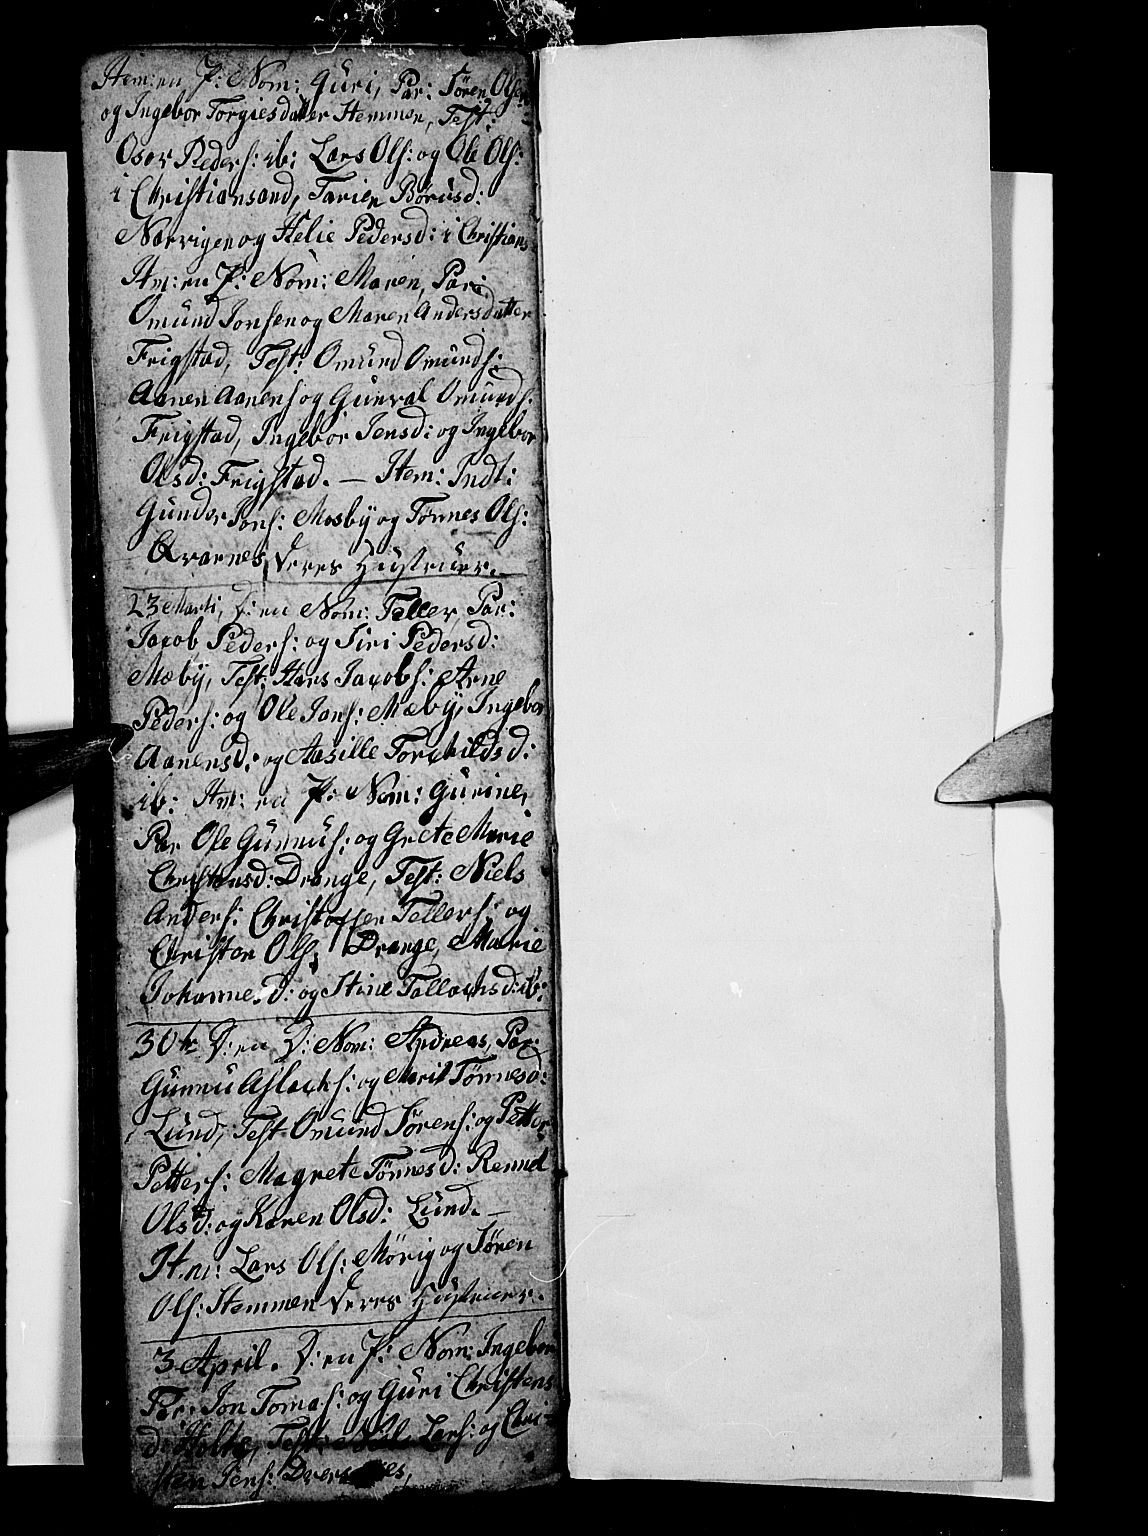 Item: en P: Nom: Guri, Par: Søren Olsen
og Ingebor Torgiesdatter Stemmen, Test:
Osor Peders: ib: Lars Ols: og Ole Ols:
i Christiansand, Tarien Børüsd:
Narvigen og Helie Pedersd: i Christians
Itm: en P: Nom: Maren, Par:
Omünd Jonsen og Maren Andersdatter
Frigstad, Test: Omünd Omünds:
Aanen Aanens og Günval Omünds:
Frigstad, Ingebor Jensd: og Ingebor
Olsd: Frigstad. — Item: Indt:
Gündor Jons: Mosbÿ og Tønnes Ols:
Qvarnes, Deres Hüstrüer.
23 Marti, D: en Nom: Teller, Par:
Jacob Peders: og Siri Pedersd:
Mæbÿ, Test: Hans Jacobs: Arne
Peders: og Ole Jons: Mæbÿ, Ingebor
Aanensd: og Aasille Torchildsd:
ib: Itm: en P: Nom: Gürine,
Par Ole Günnüs: og Grete Marie
Christensd: Drange, Test: Niels
Anders: Christoffer Tellers: og
Christen Ols: Drange, Marie
Johannesd: og Stine Tallachsd: ib:
30te D: en D: Nom: Andreas, Par:
Günnü Aslachs: og Marit Tønnesd:
Lünd, Test Omünd Sørens: og Petter
Petters: Magrete Tønnesd: Rennel
Olsd: og Karen Olsd: Lünd. —
Itm: Lars Ols: Mørig og Søren
Ols: Stemmen Deres Hüstrüer.
3 April. D: en P: Nom: Ingebor
Par: Jon Tomas: og Güri Christens
d: Holte, Test: Lars: og Chri-
sten Jens: